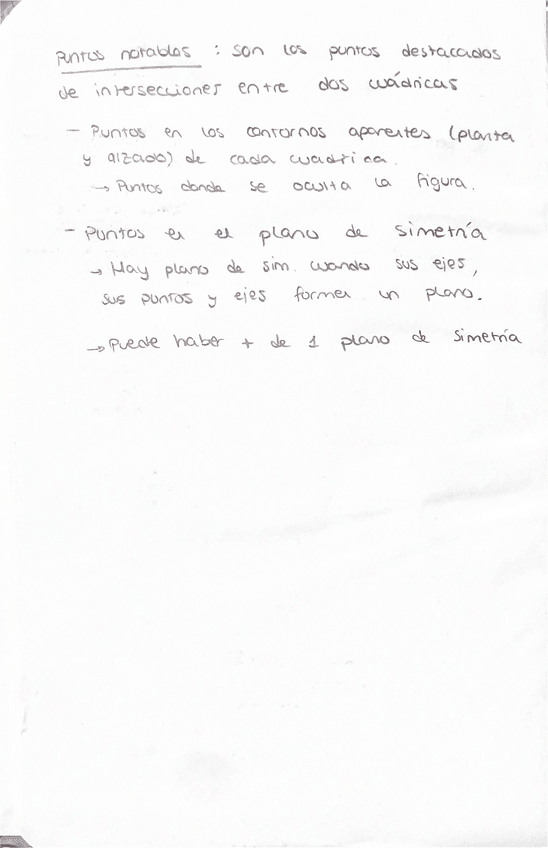 Puntos notables : son los puntos destacados
de intersecciones entre dos cuádricas
- Puntos en los contornos aparentes (planta
y alzado) de cada cuádrica.
→ Puntos donde se oculta la figura.
- Puntos en el plano de simetría
→ Hay plano de sim. cuando sus ejes,
sus puntos y ejes formen un plano.
→ Puede haber + de 1 plano de simetría